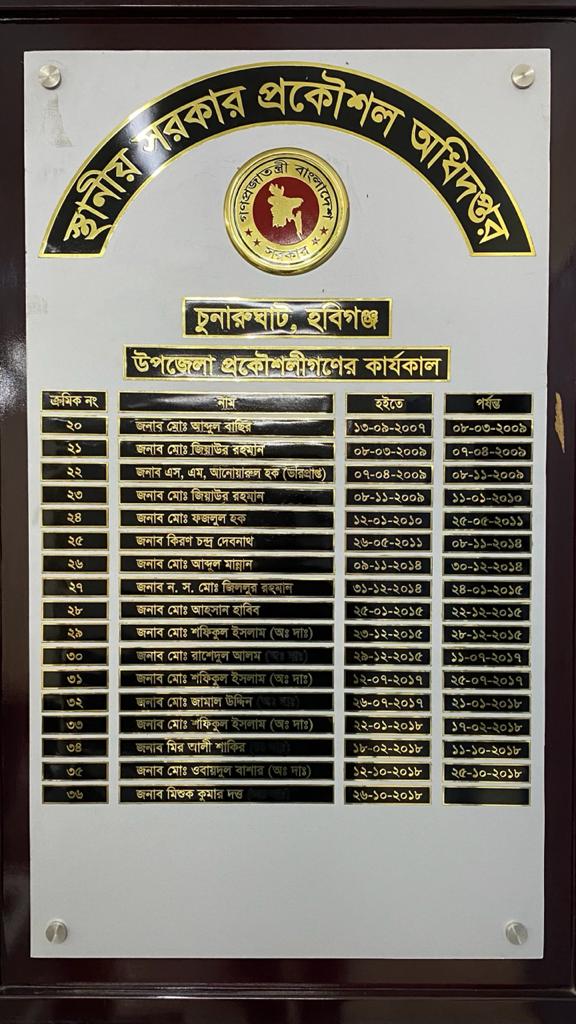 স্থানীয় সরকার প্রকৌশল অধিদপ্তর
গণপ্রজাতন্ত্রী বাংলাদেশ
সরকার
চুনারুঘাট, হবিগঞ্জ
উপজেলা প্রকৌশলীগণের কার্যকাল
ক্রমিক নং নাম হইতে পর্যন্ত
২০ জনাব মোঃ আব্দুল বাছির ১৩-০৯-২০০৭ ০৮-০৩-২০০৯
২১ জনাব মোঃ জিয়াউর রহমান ০৮-০৩-২০০৯ ০৭-০৪-২০০৯
২২ জনাব এস, এম, আনোয়ারুল হক (ভারপ্রাপ্ত) ০৭-০৪-২০০৯ ০৮-১১-২০০৯
২৩ জনাব মোঃ জিয়াউর রহমান ০৮-১১-২০০৯ ১১-০১-২০১০
২৪ জনাব মোঃ ফজলুল হক ১২-০১-২০১০ ২৫-০৫-২০১১
২৫ জনাব কিরণ চন্দ্র দেবনাথ ২৬-০৫-২০১১ ০৮-১১-২০১৪
২৬ জনাব মোঃ আব্দুল মান্নান ০৯-১১-২০১৪ ৩০-১২-২০১৪
২৭ জনাব ন. স. মোঃ জিললুর রহমান ৩১-১২-২০১৪ ২৪-০১-২০১৫
২৮ জনাব মোঃ আহসান হাবিব ২৫-০১-২০১৫ ২২-১২-২০১৫
২৯ জনাব মোঃ শফিকুল ইসলাম (অঃ দাঃ) ২৩-১২-২০১৫ ২৮-১২-২০১৫
৩০ জনাব মোঃ রাশেদুল আলম ২৯-১২-২০১৫ ১১-০৭-২০১৭
৩১ জনাব মোঃ শফিকুল ইসলাম (অঃ দাঃ) ১২-০৭-২০১৭ ২৫-০৭-২০১৭
৩২ জনাব মোঃ জামাল উদ্দিন ২৬-০৭-২০১৭ ২১-০১-২০১৮
৩৩ জনাব মোঃ শফিকুল ইসলাম (অঃ দাঃ) ২২-০১-২০১৮ ১৭-০২-২০১৮
৩৪ জনাব মির আলী শাকির ১৮-০২-২০১৮ ১১-১০-২০১৮
৩৫ জনাব মোঃ ওবায়দুল বাশার (অঃ দাঃ) ১২-১০-২০১৮ ২৫-১০-২০১৮
৩৬ জনাব মিশুক কুমার দত্ত ২৬-১০-২০১৮